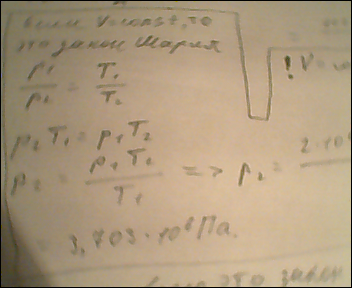 если V=const, то
это закон Шарля
p₁/p₂ = T₁/T₂
! V=
p₂T₁ = p₁T₂
p₂ = p₁T₂/T₁ => p₂ = 2·10
= 3,703·10⁶ Па.
это закон